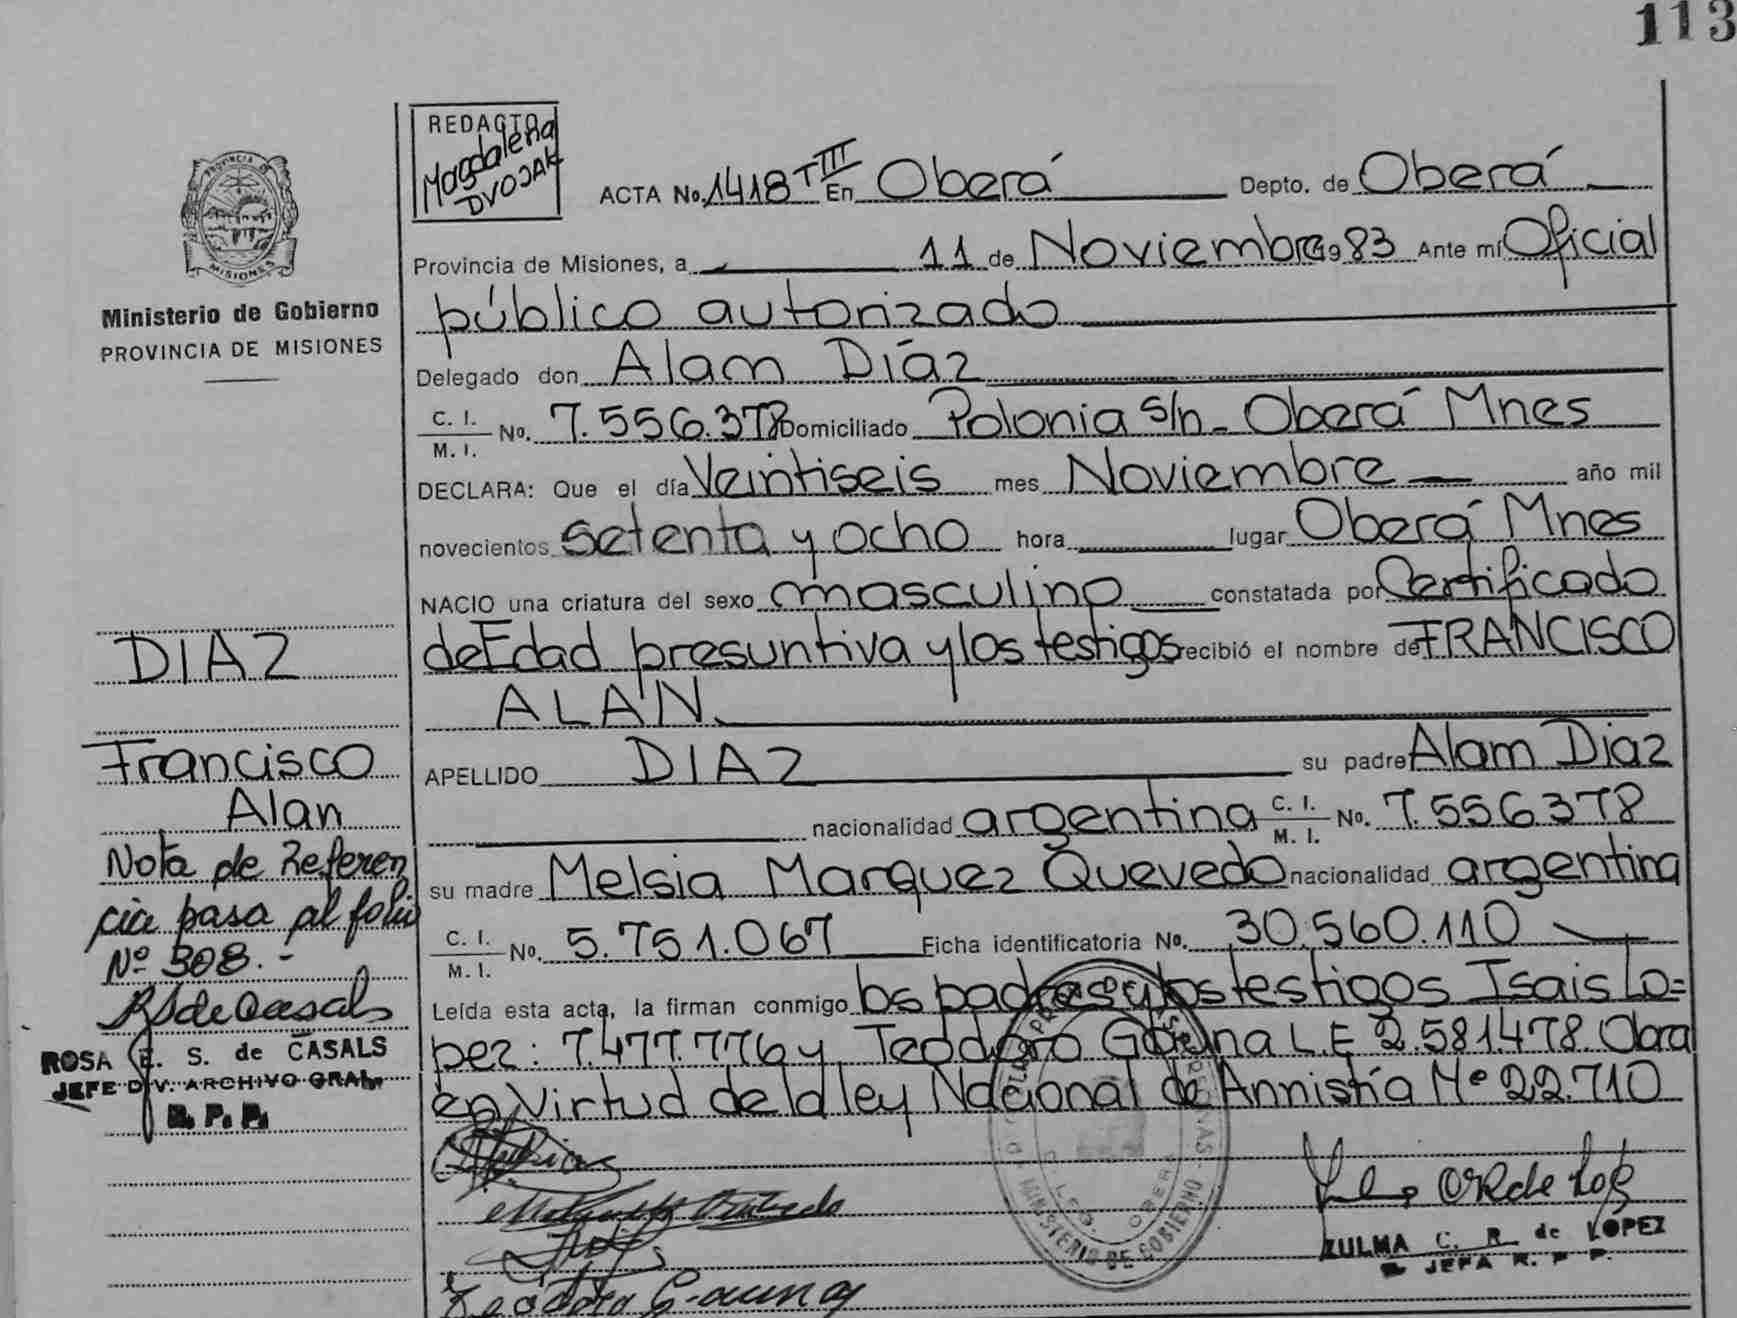 113
REDACTO
Magdalena
DVOJAK
ACTA No. 1418 T III En Oberá Depto. de Oberá
Provincia de Misiones, a 11 de Noviembre 1983 Ante mí Oficial
público autorizado
Delegado don Alam Díaz
C. I.
M. I. No. 7.556.378 Domiciliado Polonia s/n - Oberá Mnes
DECLARA: Que el día Veintiseis mes Noviembre año mil
novecientos setenta y ocho hora lugar Oberá Mnes
NACIO una criatura del sexo masculino constatada por Certificado
de Edad presuntiva y los testigos recibió el nombre de FRANCISCO
ALAN.
APELLIDO DIAZ su padre Alam Diaz
nacionalidad argentina C. I.
M. I. No. 7.556378
su madre Melsia Marquez Quevedo nacionalidad argentina
C. I.
M. I. No. 5.751.067 Ficha identificatoria No. 30.560.110
Leída esta acta, la firman conmigo los padres y los testigos Isais Lo=
pez: 7.477.776 y Teodoro Gauna L.E 2.581.478. Obra
en virtud de la ley Nacional de Amnistía Nº 22.710
Teodoro Gauna
ZULMA C. R. de LOPEZ
JEFA R. P. P.
MINISTERIO DE GOBIERNO
OBERA
PROVINCIA DE
MISIONES
Ministerio de Gobierno
PROVINCIA DE MISIONES
DIAZ
Francisco
Alan
Nota de Referen
cia pasa al folio
Nº 308.-
RSdeCasals
ROSA E. S. de CASALS
JEFE DIV. ARCHIVO GRAL.
R. P. P.